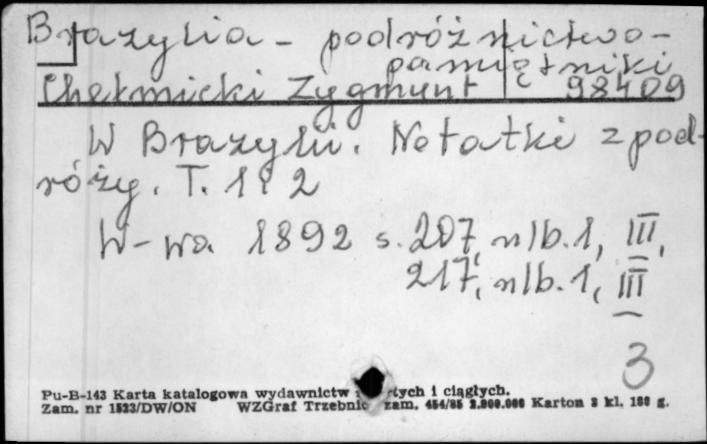 Brazylia - podróżnictwo -
pamiętniki
Chełmicki Zygmunt 98409
W Brazylii. Notatki z pod-
róży. T. 1 i 2
W-wa 1892 s. 207, nlb. 1, III,
217, nlb. 1, III
3
Pu-B-143 Karta katalogowa wydawnictw ciągłych.
Zam. nr 1523/DW/ON WZGraf zam. 454/85 2.000.000 Karton 3 kl. 180 g.